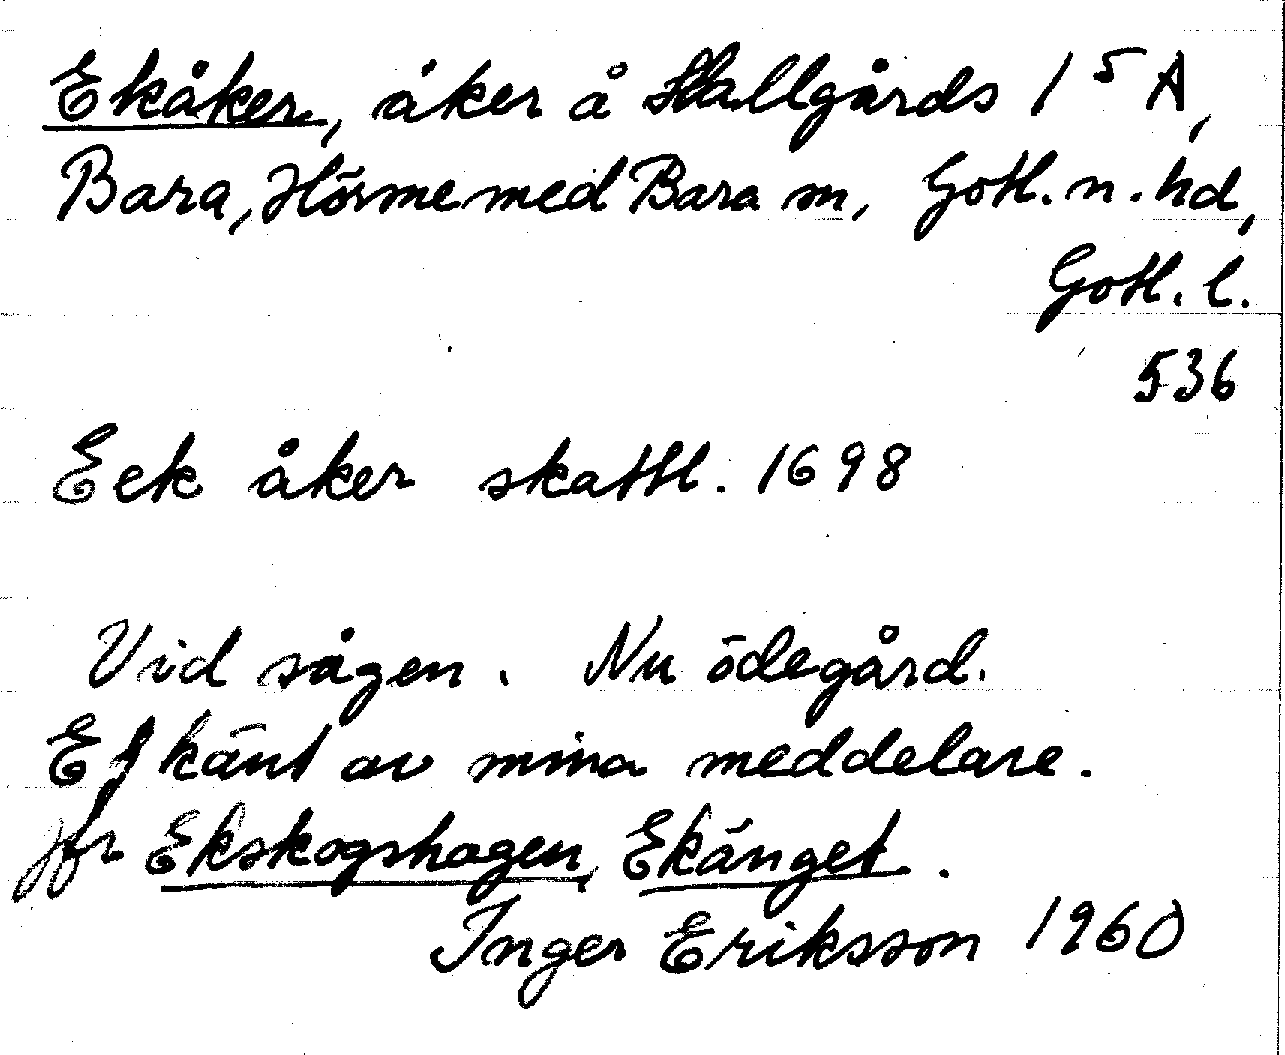 Ekåker, åker å Hallgårds 1⁵ A,
Bara, Hörsne med Bara sn, Gotl. n. hd,
Gotl. l.
536
Eek åker skattl. 1698
Vid sågen. Nu ödegård.
Ej känt av mina meddelare.
jfr Ekskogshagen, Ekänget.
Inger Eriksson 1960